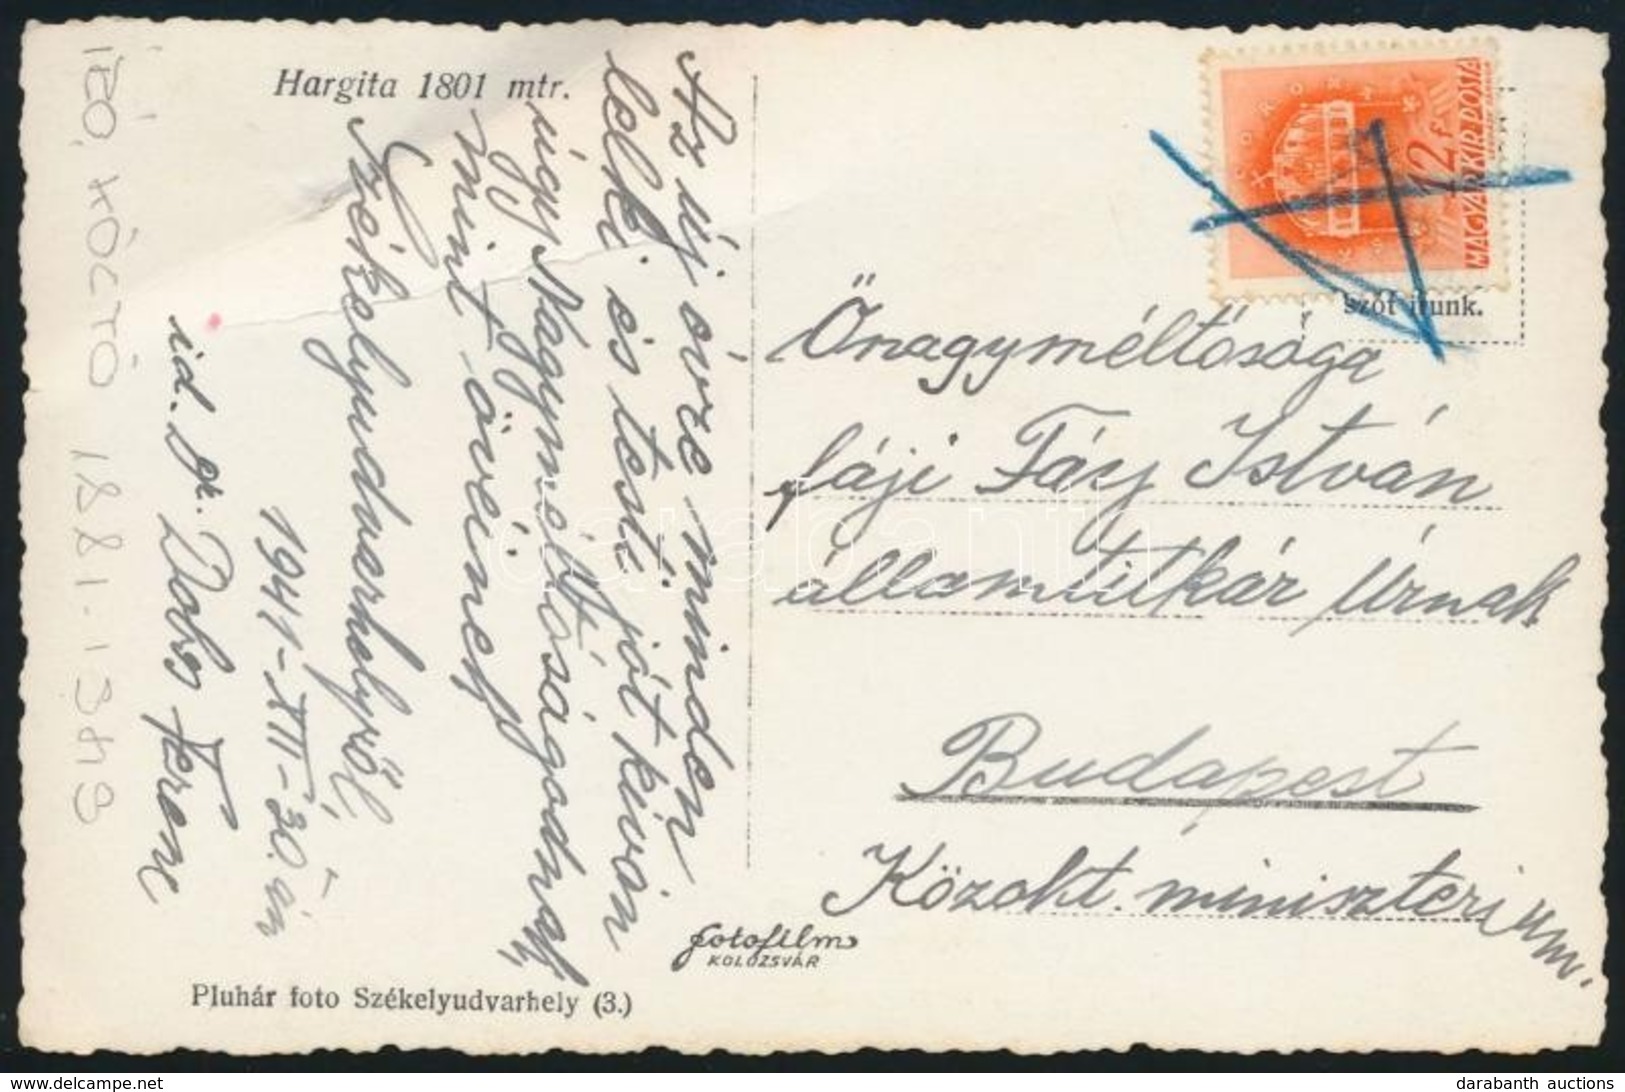 Hargita 1801 mtr.
Az új évre minden
lelki és testi jót kíván
úgy Nagyméltóságodnak,
mint övéinek
Székelyudvarhelyről,
1941-XII-30.-án
id. gr. Ferenc
író, 1881-1949
Pluhár foto Székelyudvarhely (3.)
fotofilm
KOLOZSVÁR
MAGYAR KIR. POSTA
12 f
szót írunk.
Őnagyméltósága
fáji Fáy István
államtitkár Úrnak
Budapest
Közokt. miniszterium.
darabanth
darabanth auctions